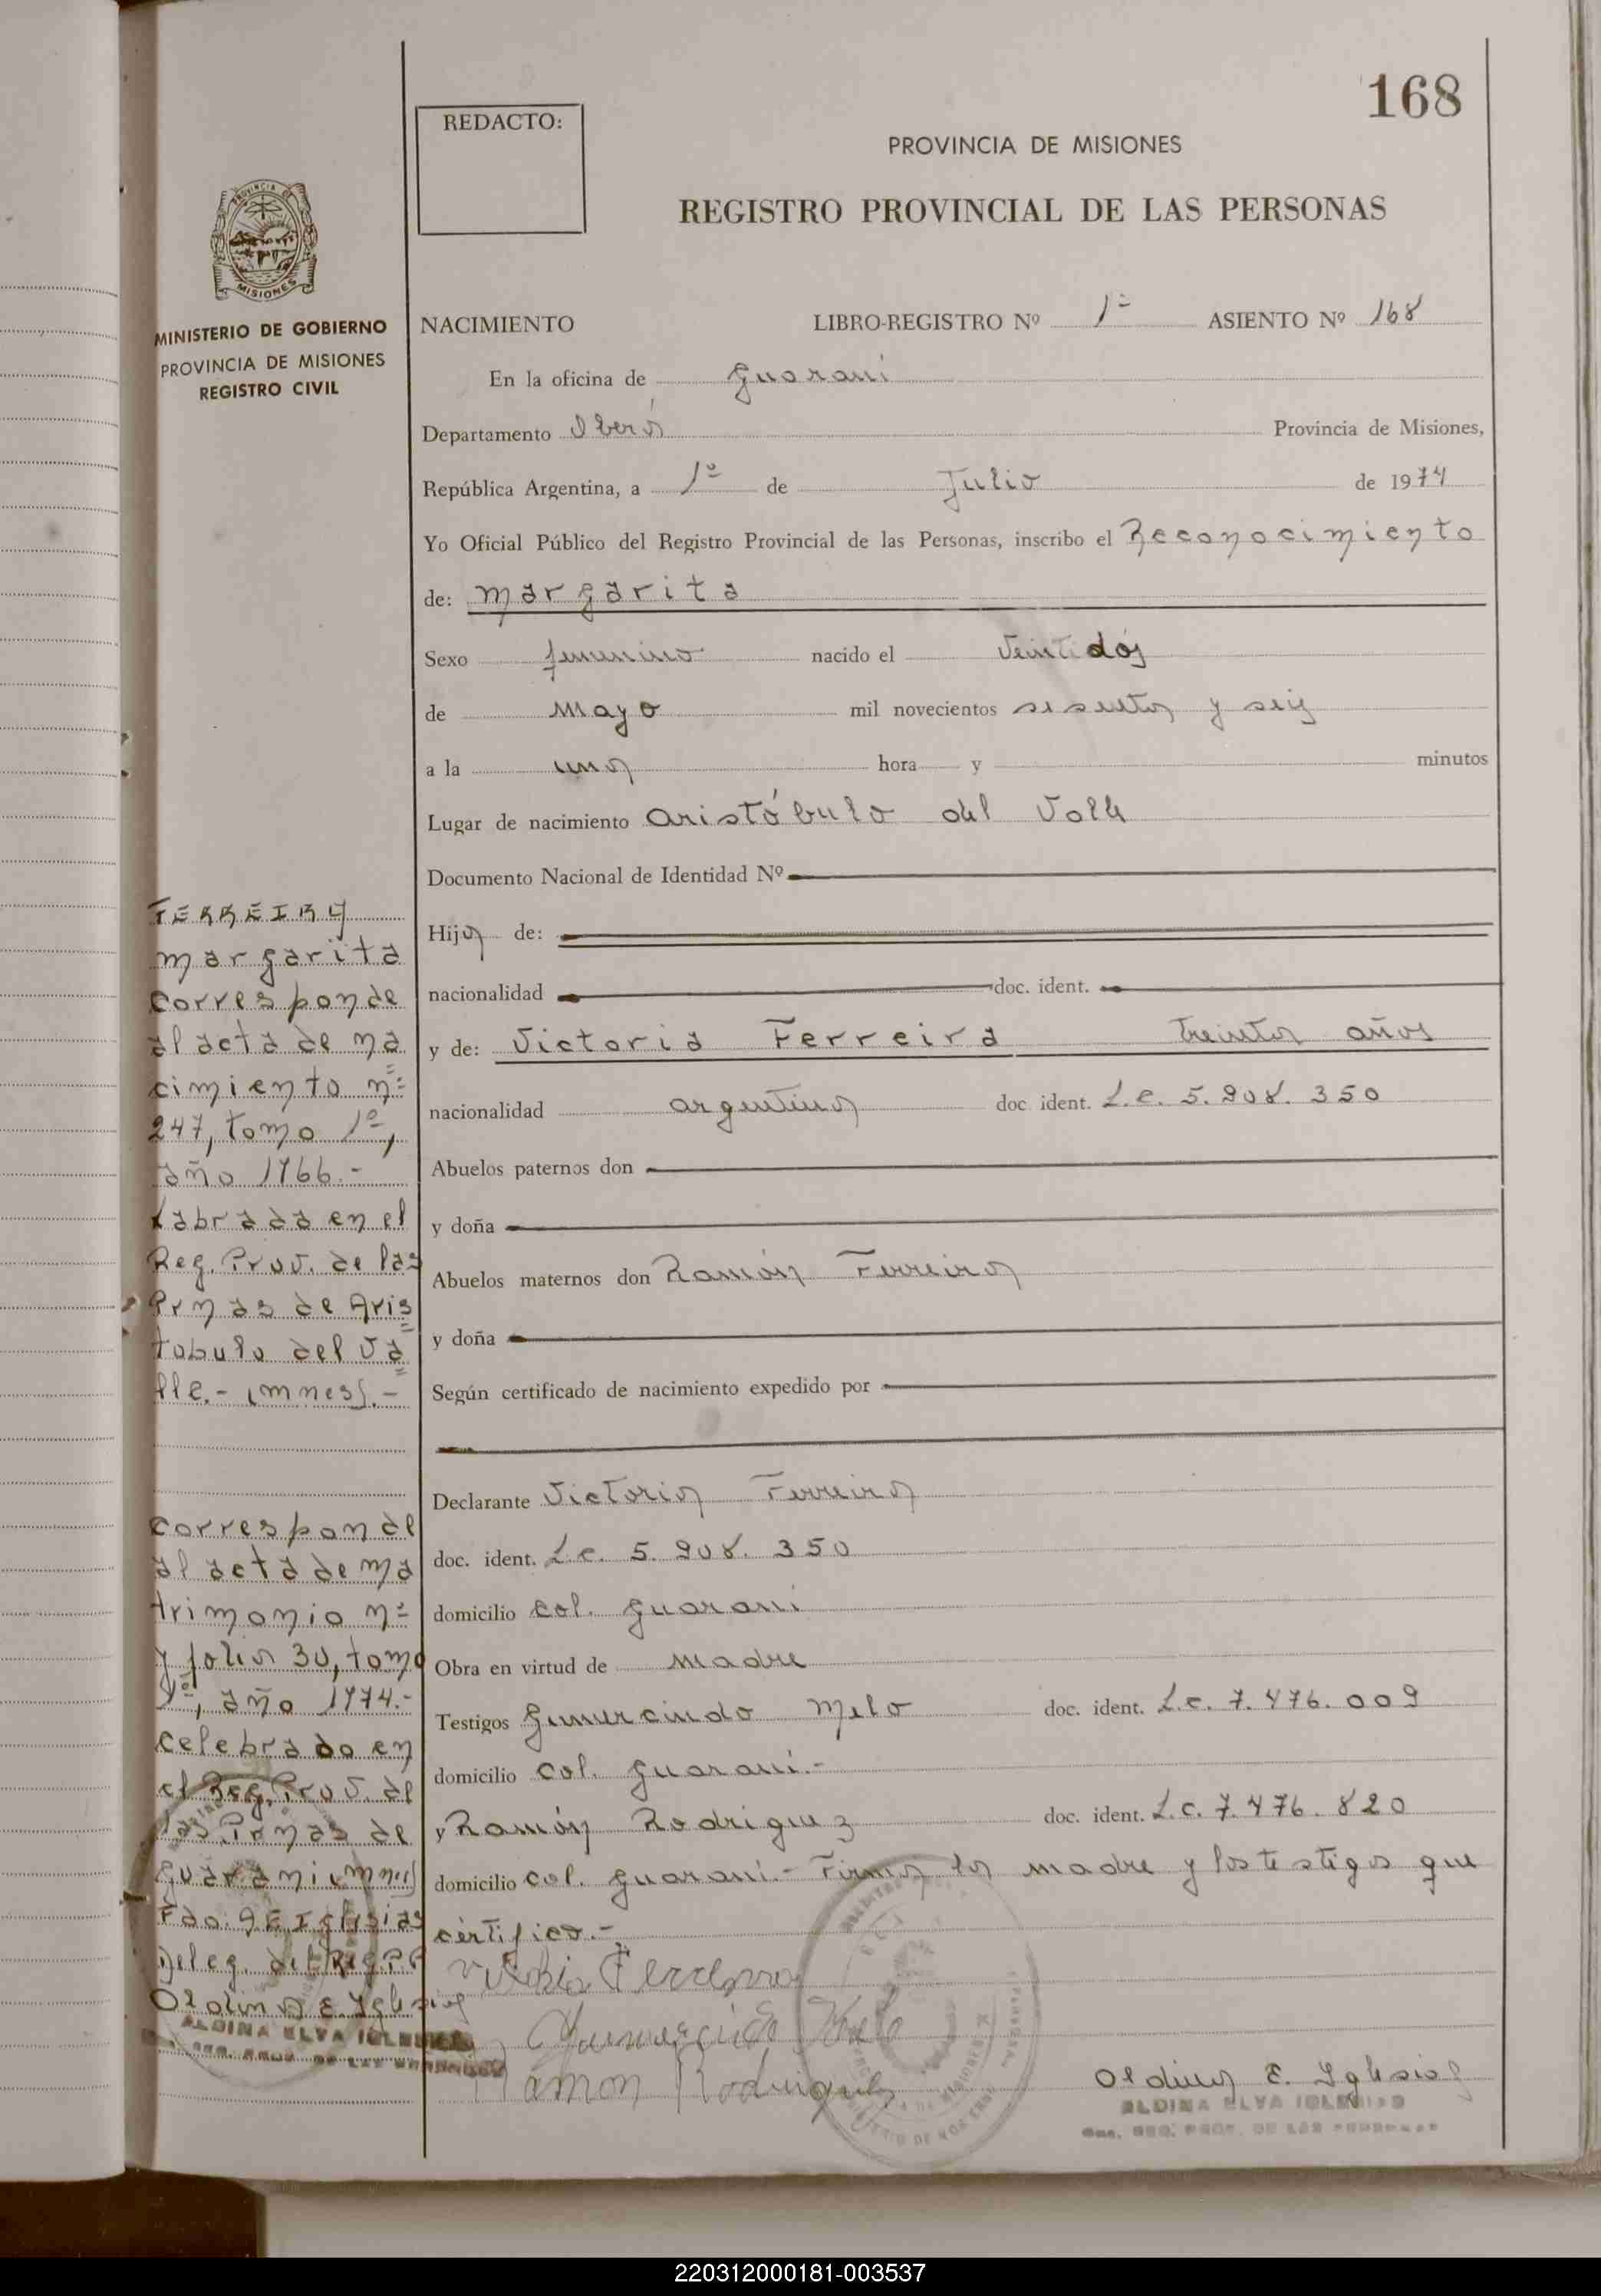 168
REDACTO:
PROVINCIA DE MISIONES
REGISTRO PROVINCIAL DE LAS PERSONAS
PROVINCIA DE
MISIONES
MINISTERIO DE GOBIERNO
PROVINCIA DE MISIONES
REGISTRO CIVIL
NACIMIENTO LIBRO-REGISTRO Nº 1º ASIENTO Nº 168
En la oficina de Guaraní
Departamento Oberá Provincia de Misiones,
República Argentina, a 1º de Julio de 1974
Yo Oficial Público del Registro Provincial de las Personas, inscribo el Reconocimiento
de: Margarita
Sexo femenino nacido el Veintidós
de Mayo mil novecientos sesenta y seis
a la una hora y minutos
Lugar de nacimiento Aristóbulo del Valle
Documento Nacional de Identidad Nº
Hija de:
nacionalidad doc. ident.
y de: Victoria Ferreira Treinta años
nacionalidad argentina doc ident. L.C. 5.908.350
Abuelos paternos don
y doña
Abuelos maternos don Ramón Ferreira
y doña
Según certificado de nacimiento expedido por
Declarante Victoria Ferreira
doc. ident. L.C. 5.908.350
domicilio Col. Guaraní
Obra en virtud de Madre
Testigos Gumercindo Melo doc. ident. L.C. 7.476.009
domicilio Col. Guaraní.-
y Ramón Rodriguez doc. ident. L.C. 7.476.820
domicilio Col. Guaraní.- Firma la madre y los testigos que
certifico.-
Ferreira
Ramon Rodriguez
Aldina E. Iglesias
ALDINA ELVA IGLESIAS
REG. PROV. DE LAS PERSONAS
FERREIRA
Margarita
Corresponde
al acta de na
cimiento nº
247, tomo 1º,
año 1966.-
Labrada en el
Reg. Prov. de las
Prnas de Aris
tobulo del Va
lle.- (Mnes).-
Corresponde
al acta de ma
trimonio nº
y folio 30, tomo
1º, año 1974.-
Celebrado en
el Reg. Prov. de
las Prnas de
Guaraní (Mnes)
Fdo. A E Iglesias
Deleg. del Reg. P.P
Aldina E. Iglesias
ALDINA ELVA IGLESIAS
REG. PROV. DE LAS PERSONAS
220312000181-003537